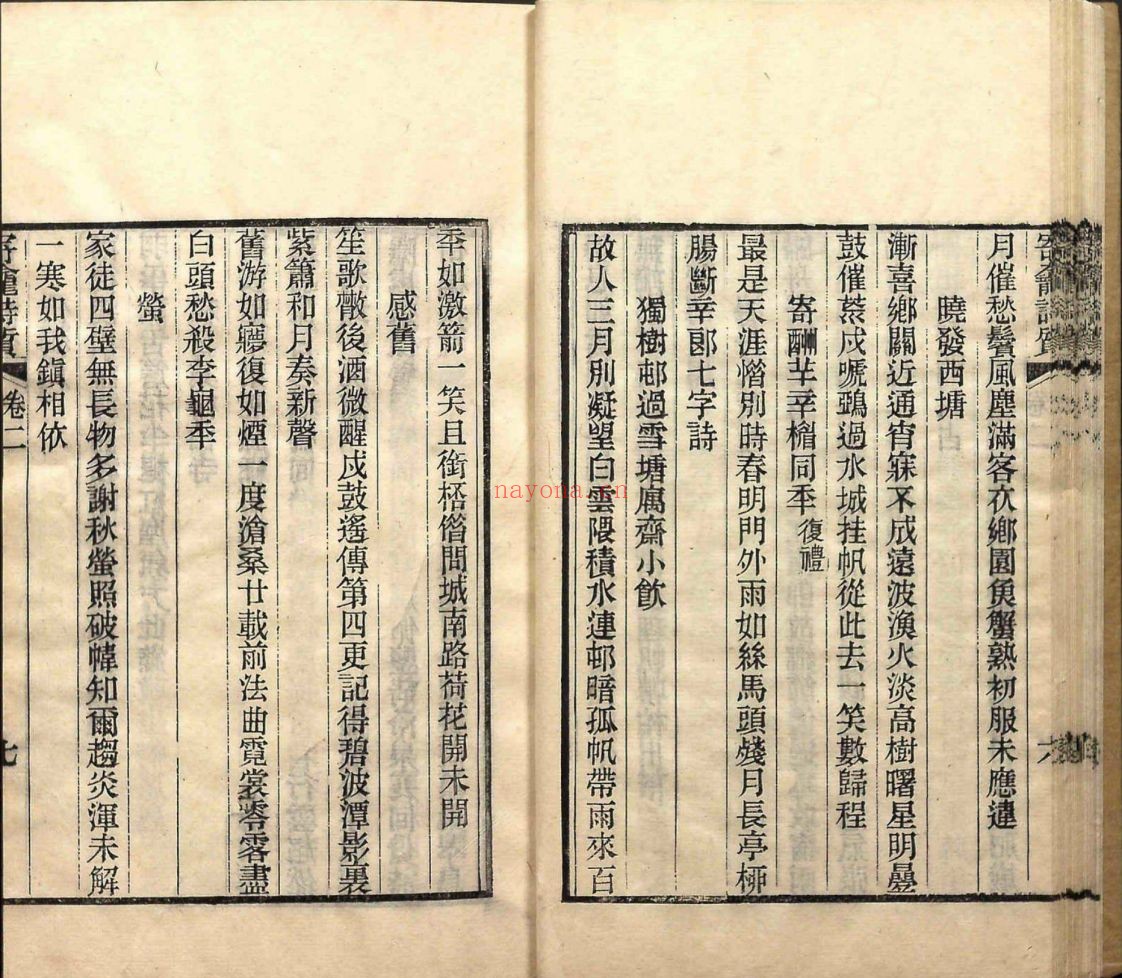 月催愁鬢風塵滿客衣鄉園魚蟹熟初服未應違
曉發西塘
漸喜鄉關近通宵寐不成遠波漁火淡高樹曙星明曡
鼓催嚴戍唬鵶過水城挂帆從此去一笑數歸程
寄酬芏䒑檣同秊 復禮
最是天涯惜別時春明門外雨如絲馬頭殘月長亭桺
腸斷䒑郎七字詩
獨樹邨過雪塘寓齋小飲
故人三月別凝望白雲隈積水連邨暗孤帆帶雨來百
秊如激箭一笑且銜桮借問城南路荷花開未開
感舊
笙歌散後酒微醒戍鼓遙傳第四更記得碧波潭影裏
紫簫和月奏新聲
舊游如夢復如煙一度滄桑廿載前法曲霓裳零落盡
白頭愁殺李龜秊
螢
家徒四壁無長物多謝秋螢照破幃知爾趨炎渾未解
一寒如我鎭相依
寄龕詩質 卷二
七
寄龕詩質
六
nayona.cn